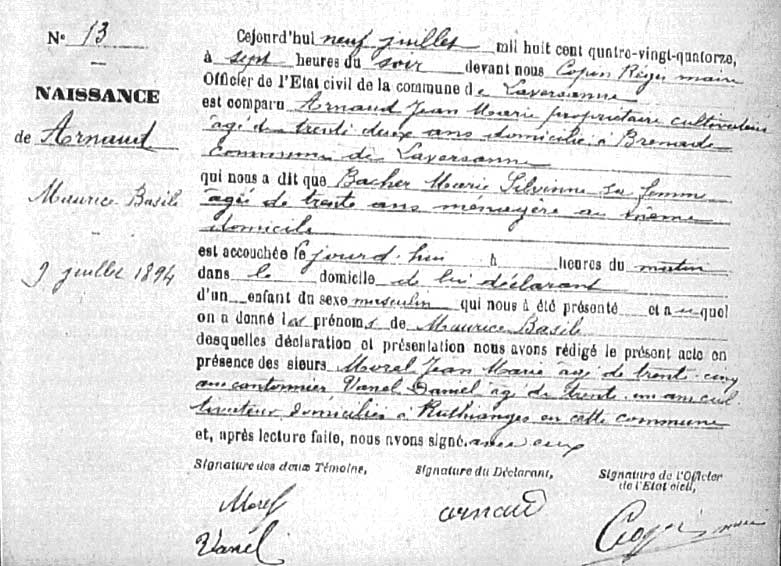 N° 13
NAISSANCE
de Arnaud
Maurice Basile
9 juillet 1894
Cejourd'hui neuf juillet mil huit cent quatre-vingt-quatorze,
à sept heures du soir devant nous Copin Régis maire
Officier de l'Etat civil de la commune de Laversanne
est comparu Arnaud Jean Marie propriétaire cultivateur
âgé de trente deux ans domicilié à
commune de Laversanne
qui nous a dit que Bacher Marie Silvinne sa femme
âgée de trente ans ménagère au même
domicile
est accouchée ce jourd'hui à heures du matin
dans le domicile de lui déclarant
d'un enfant du sexe masculin qui nous à été présenté et auquel
on a donné les prénoms de Maurice Basile
desquelles déclaration et présentation nous avons rédigé le présent acte en
présence des sieurs Morel Jean Marie âgé de trente cinq
ans cantonnier Vanel Daniel âgé de trente un ans cul
tivateur domiciliés à Ruthianges en cette commune
et, après lecture faite, nous avons signé avec eux
Signature des deux Témoins,
Morel
Vanel
Signature du Déclarant,
arnaud
Signature de l'Officier
de l'Etat civil,
maire